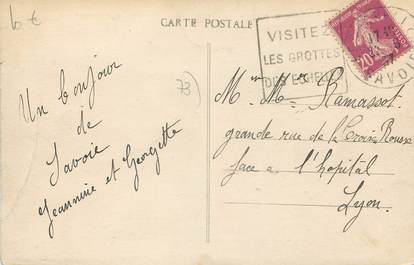 6 €
CARTE POSTALE
VISITEZ
LES GROTTES
DES ECHELLES
SAVOIE
20
73
Un bonjour
de
Savoie
Jeannine et Georgette
Mr Mme Ramassot
grande rue de la Croix Rousse
face à l'hopital
Lyon.